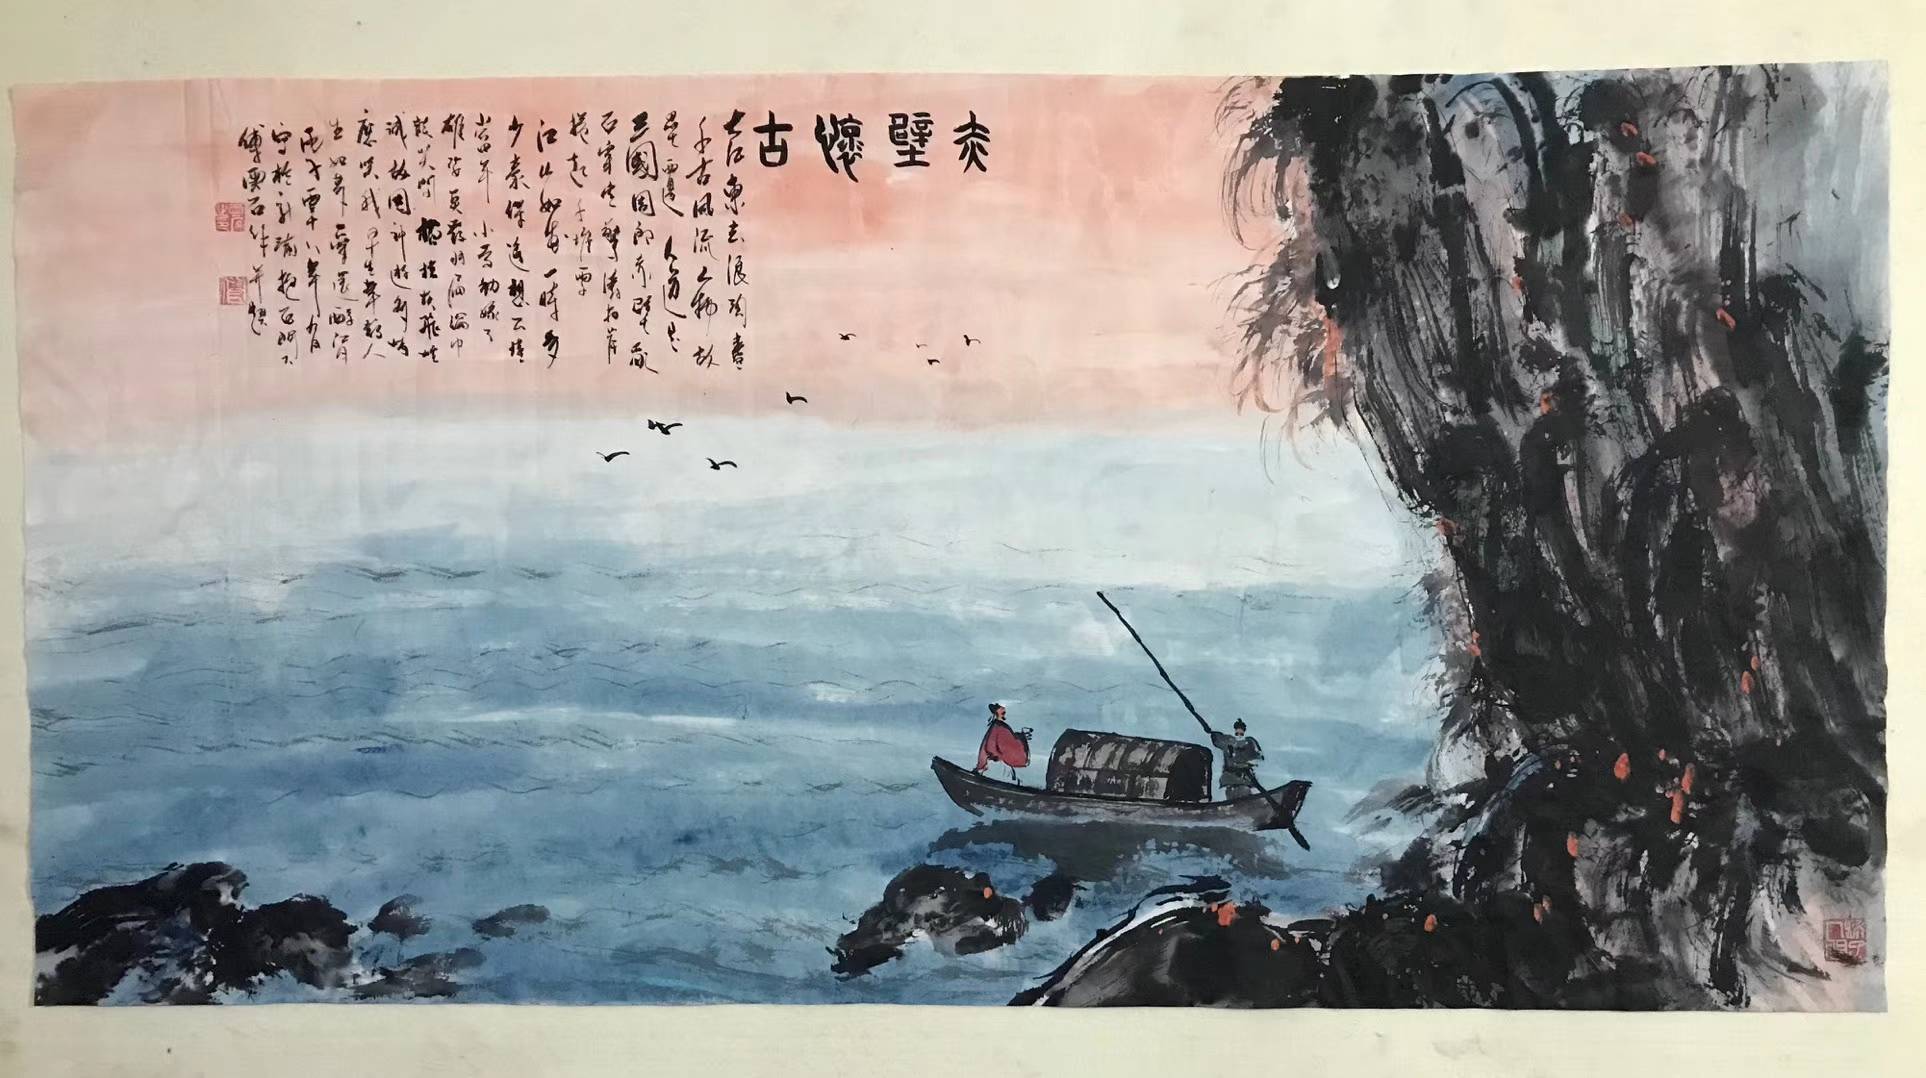 赤壁懷古
大江東去浪淘盡
千古風流人物故
壘西邊人道是
三國周郎赤壁亂
石穿空驚濤拍岸
捲起千堆雪
江山如畫一時多
少豪傑遥想公瑾
當年小喬初嫁了
雄姿英發羽扇綸巾
談笑間檣櫓灰飛煙
滅故國神遊多情
應笑我早生華髮人
生如夢一尊還酹江
月年九月
寫於抱石門下
傅石作并題